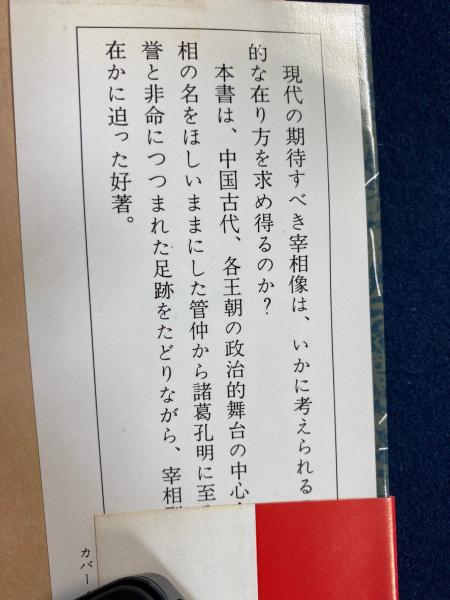 現代の期待すべき宰相像は、いかに考えられる
的な在り方を求め得るのか?
本書は、中国古代、各王朝の政治的舞台の中心
相の名をほしいままにした管仲から諸葛孔明に至
誉と非命につつまれた足跡をたどりながら、宰相
在かに迫った好著。
カバー